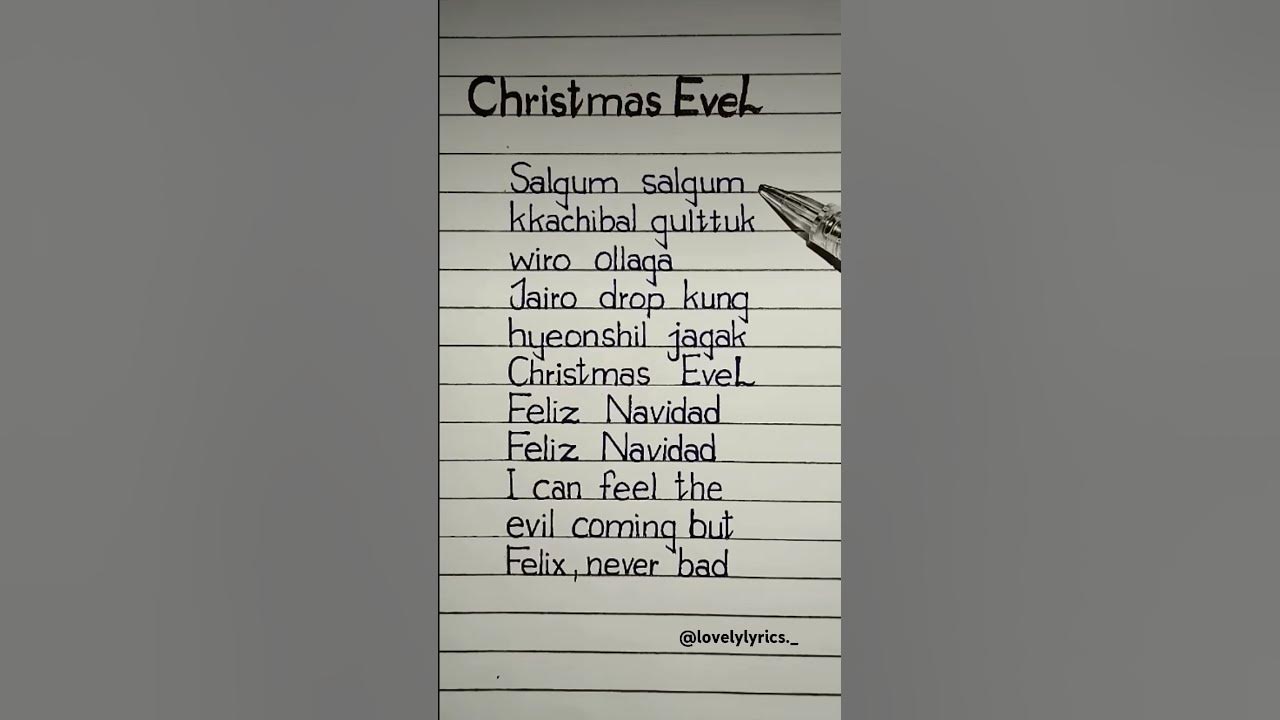 Christmas EveL
Salgum salgum
kkachibal gulttuk
wiro ollaga
Jairo drop kung
hyeonshil jagak
Christmas EveL
Feliz Navidad
Feliz Navidad
I can feel the
evil coming but
Felix, never bad
@lovelylyrics._